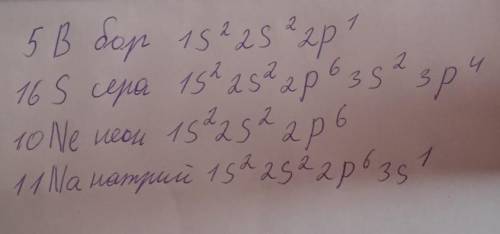 5 B бор 1s² 2s² 2p¹
16 S сера 1s² 2s² 2p⁶ 3s² 3p⁴
10 Ne неон 1s² 2s² 2p⁶
11 Na натрий 1s² 2s² 2p⁶ 3s¹